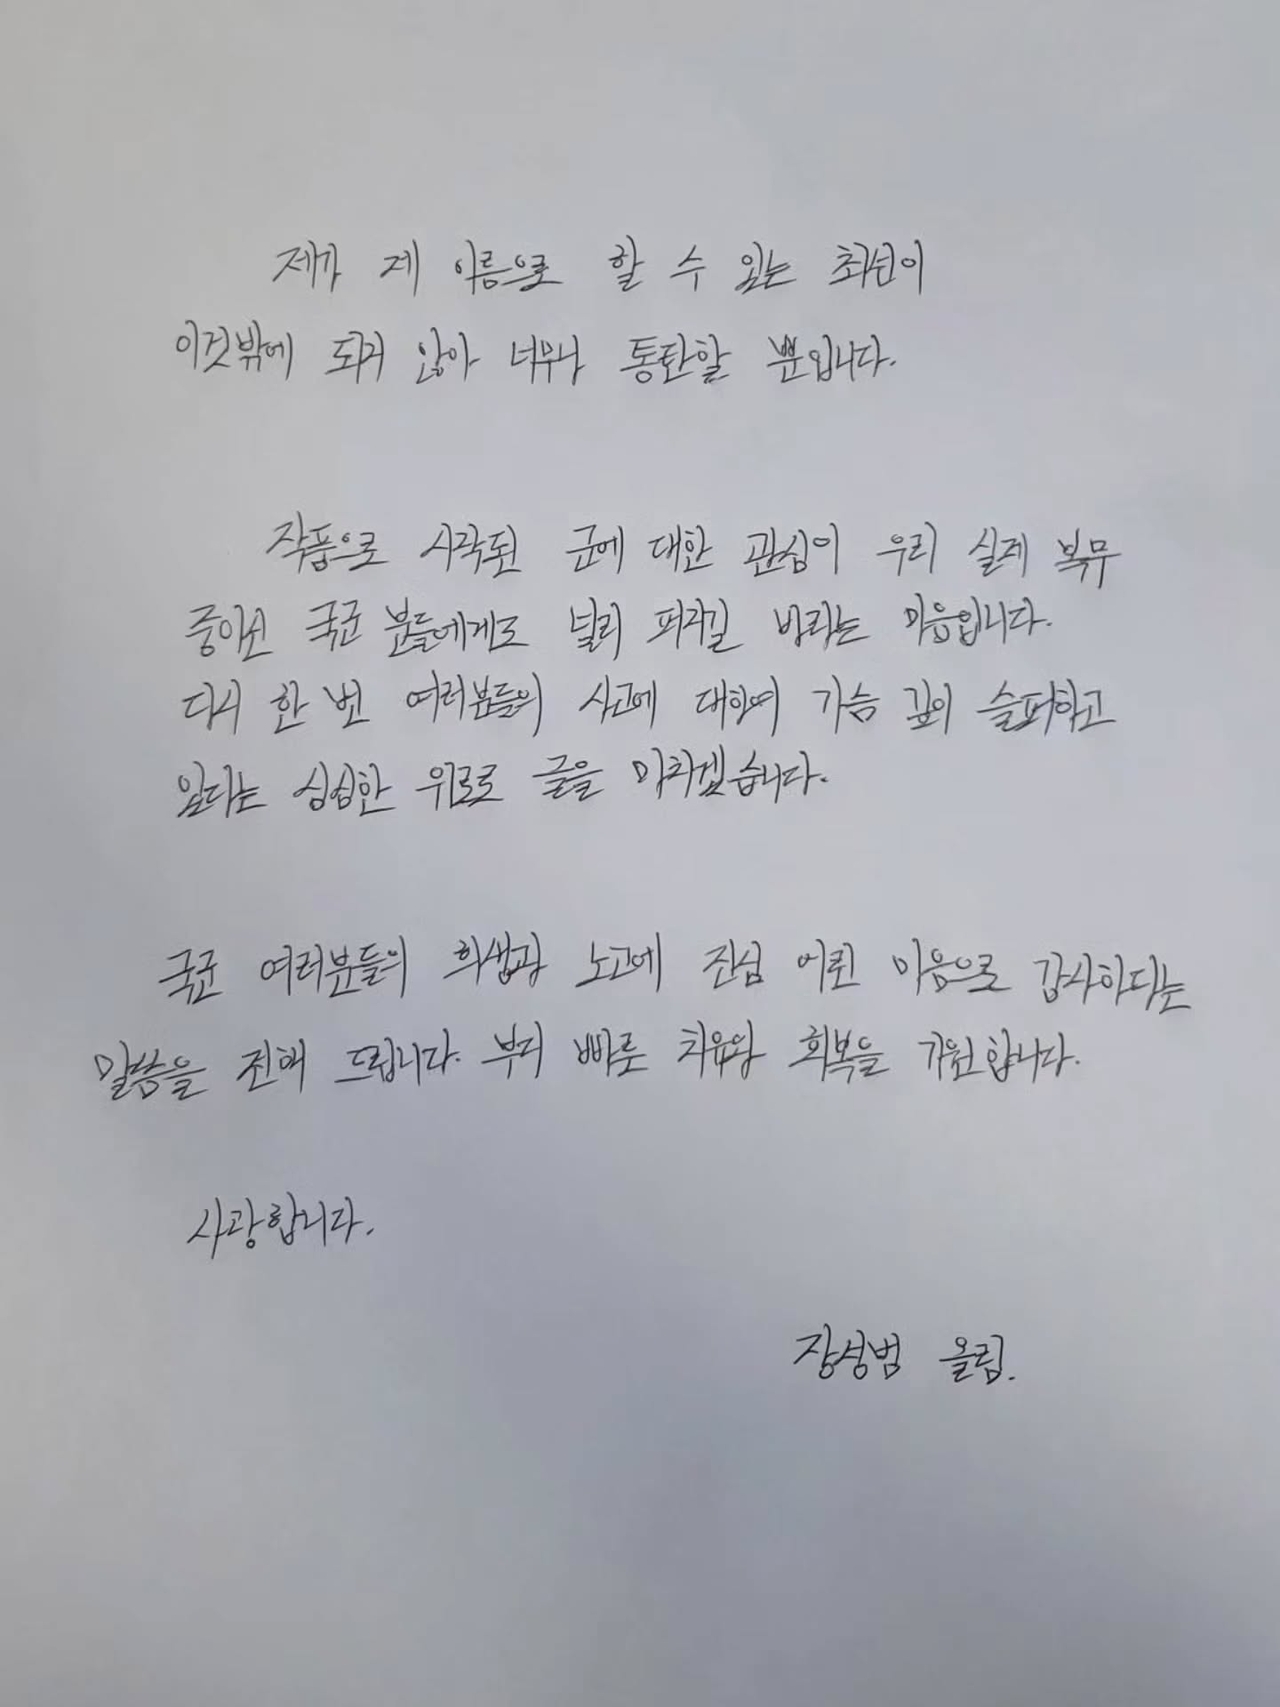 제가 제 이름으로 할 수 있는 최선이
이것밖에 되지 않아 너무나 통탄할 뿐입니다.
작품으로 시작된 군에 대한 관심이 우리 실제 복무
중이신 국군 분들에게도 널리 퍼지길 바라는 마음입니다.
다시 한 번 여러분들의 사고에 대하여 가슴 깊이 슬퍼하고
있다는 심심한 위로로 글을 마치겠습니다.
국군 여러분들의 희생과 노고에 진심 어린 마음으로 감사하다는
말씀을 전해 드립니다. 부디 빠른 치유와 회복을 기원합니다.
사랑합니다.
장성범 올림.